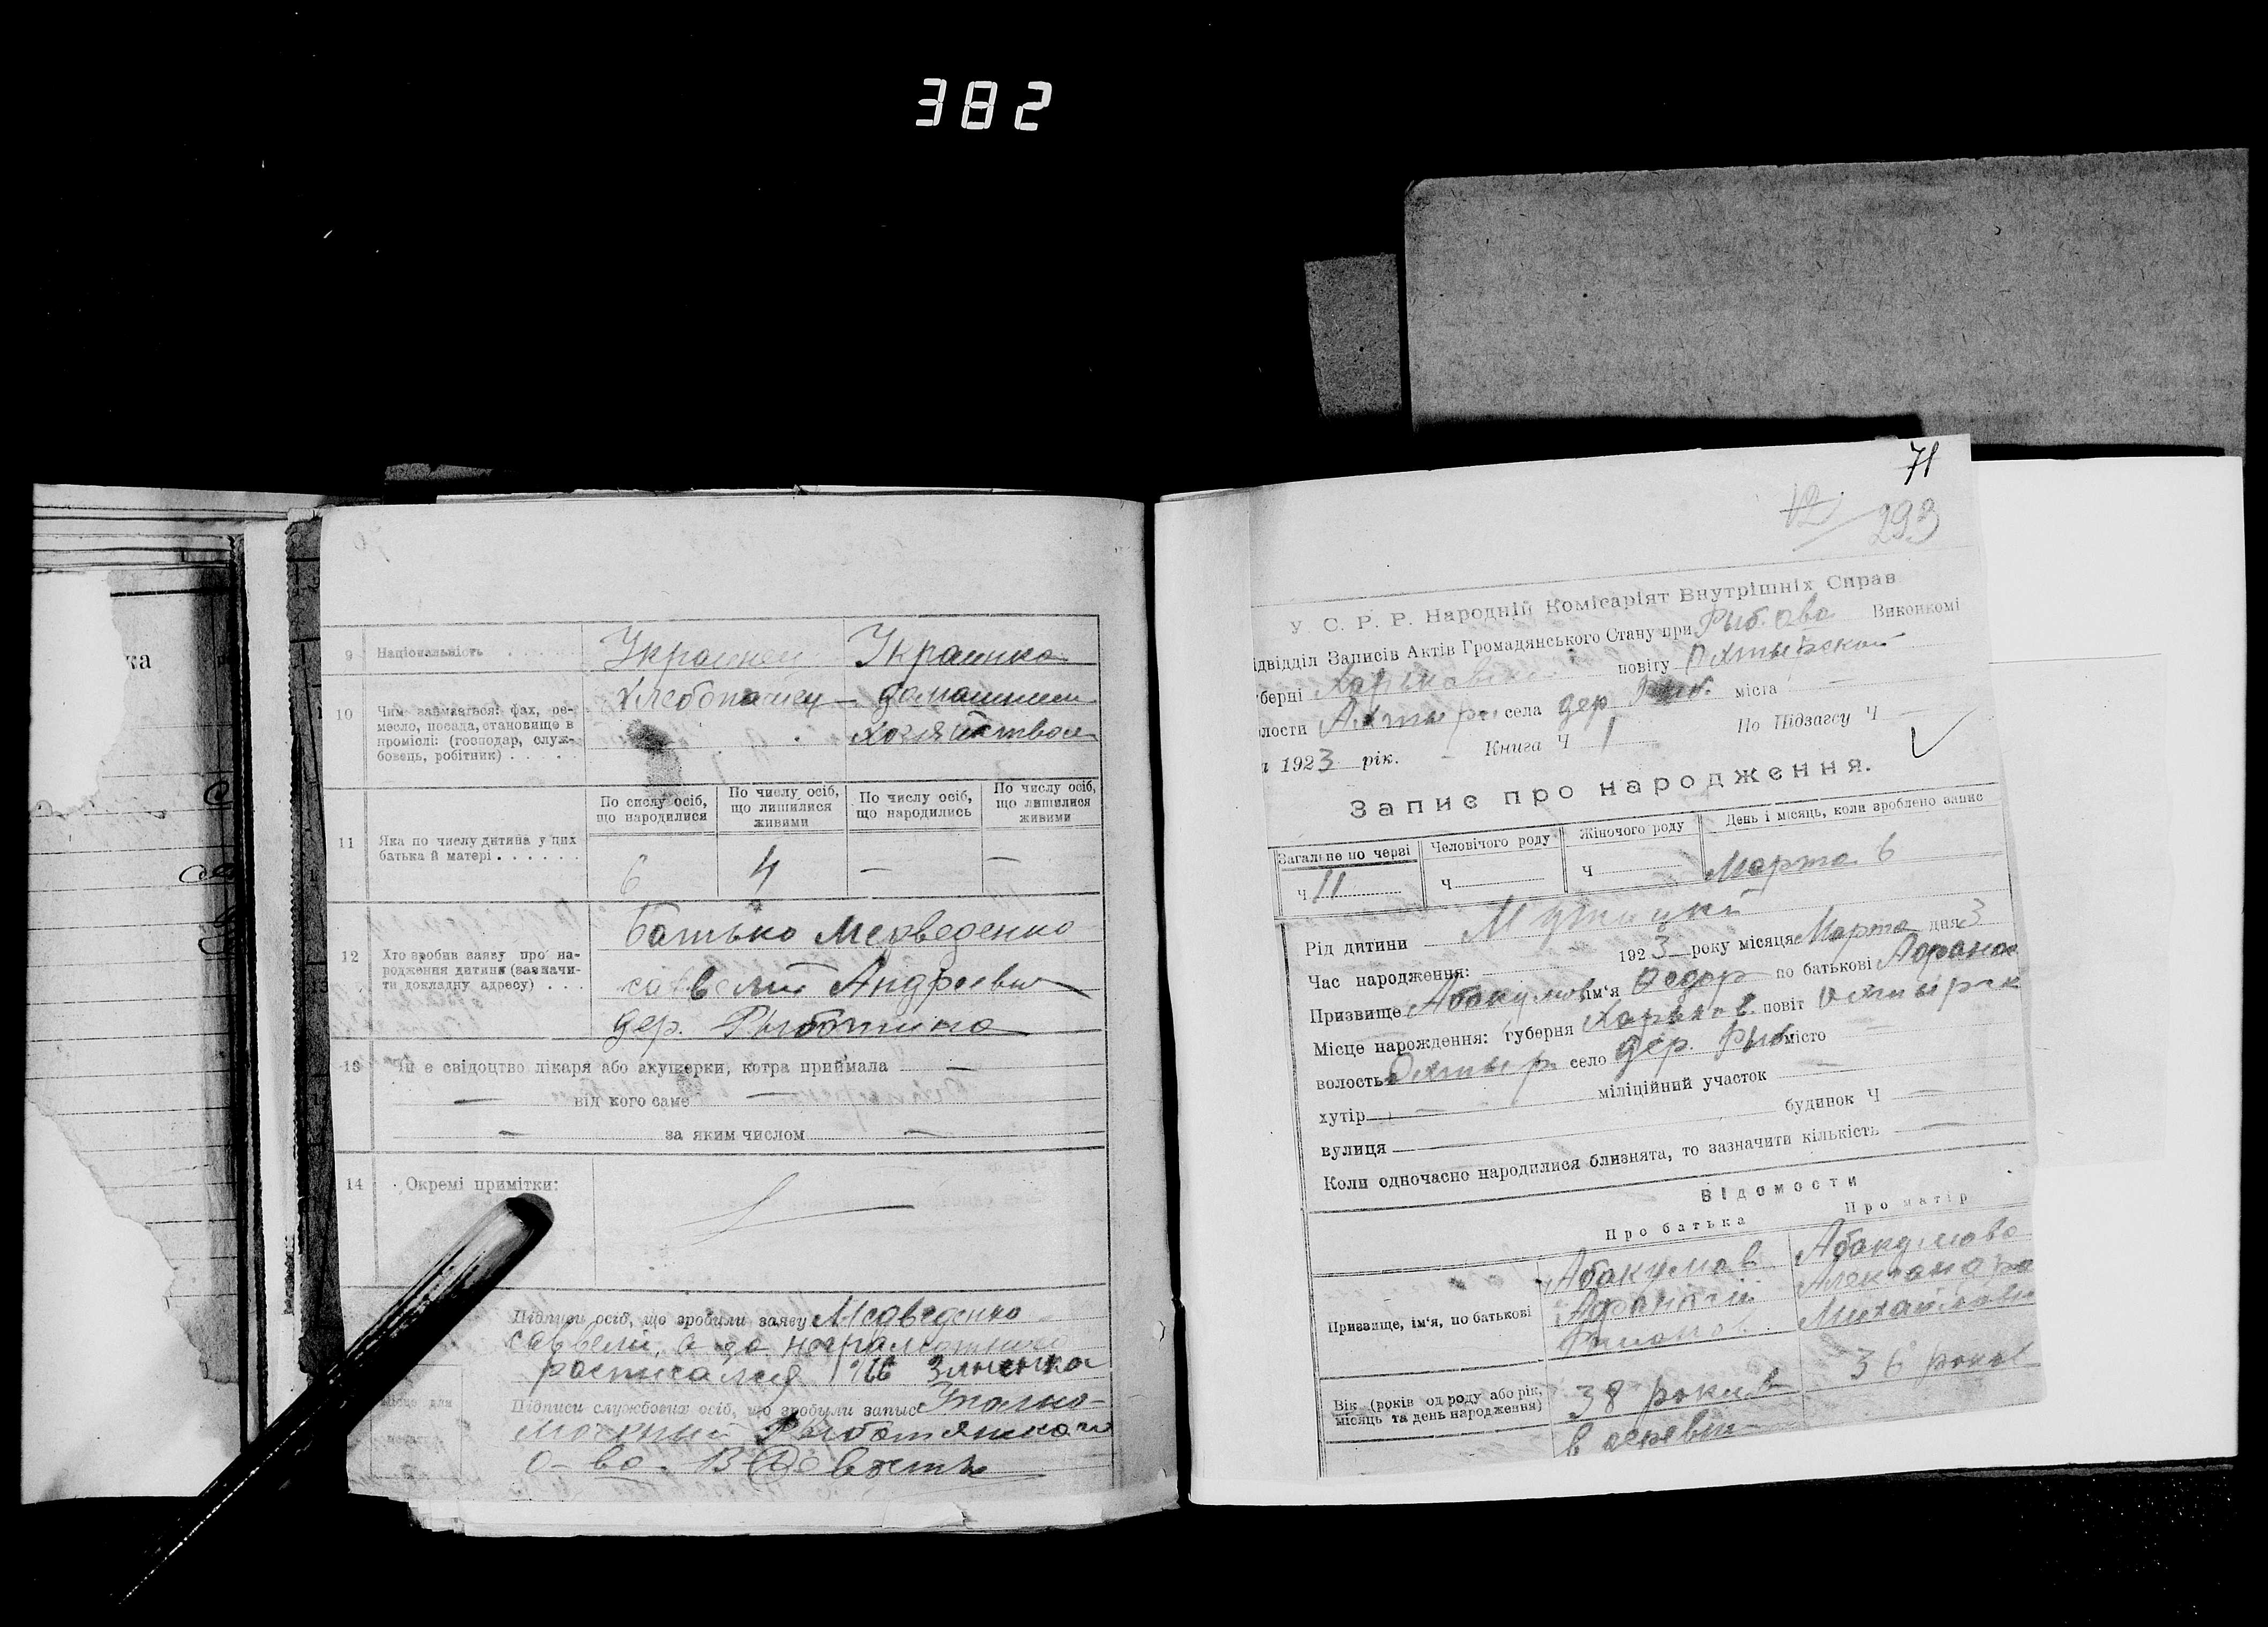 382
ка
9 Національність Украинец Украинка
10 Чим займається: фах, ре-
месло, посада, становище в
промислі: (господар, служ-
бовець, робітник)
Хлебопашец — домашнием
хозяйством
11 Яка по числу дитина у цих
батька й матері
По числу осіб,
що народилися
По числу осіб,
що лишилися
живими
По числу осіб,
що народились
По числу осіб,
що лишилися
живими
6 4 — —
12 Хто зробив заяву про на-
родження дитини (зазначи-
ти докладну адресу)
Батько Медведенко
Савелий Андреевич
дер. Рыботина
13 Чи є свідоцтво лікаря або акушерки, котра приймала —
— від кого саме —
— за яким числом —
14 Окремі примітки:
Підписи осіб, що зробили заяву Медведенко
Савелий, а за неграмотного
расписался
Підписи службових осіб, що зробили запис Уполно-
моченный
о-ва.
71
12 293
У С. Р. Р. Народній Комісаріят Внутрішніх Справ
ідвідділ Записів Актів Громадянського Стану при Рыб. Виконкомі
берні Харьковської повіту Охтырской
лости Ахтыр. села дер Рыб. міста —
1923 рік. Книга Ч 1 По Підзагсу Ч —
Запис про народження.
Загальне по черзі Человічого роду Жіночого роду День і місяць, коли зроблено запис
Ч 11 Ч Ч Марта 6
Рід дитини Мужицкий
Час народження: 1923 року місяця Марта дня 3
Призвище Абакумов ім'я Федор по батькові Афанас
Місце нарождення: губерня Харьков. повіт Охтырск
волость Охтыр. село дер. Рыб. місто —
хутір — міліційний участок —
вулиця — будинок Ч —
Коли одночасно народилися близнята, то зазначити кількість —
Відомости
Про батька Про матір
Призвище, ім'я, по батькові
Абакумов Абакумова
Афанасий Александра
Михайлови
Вік (років од роду або рік,
місяць та день народження)
38 років 36 років
в деревни